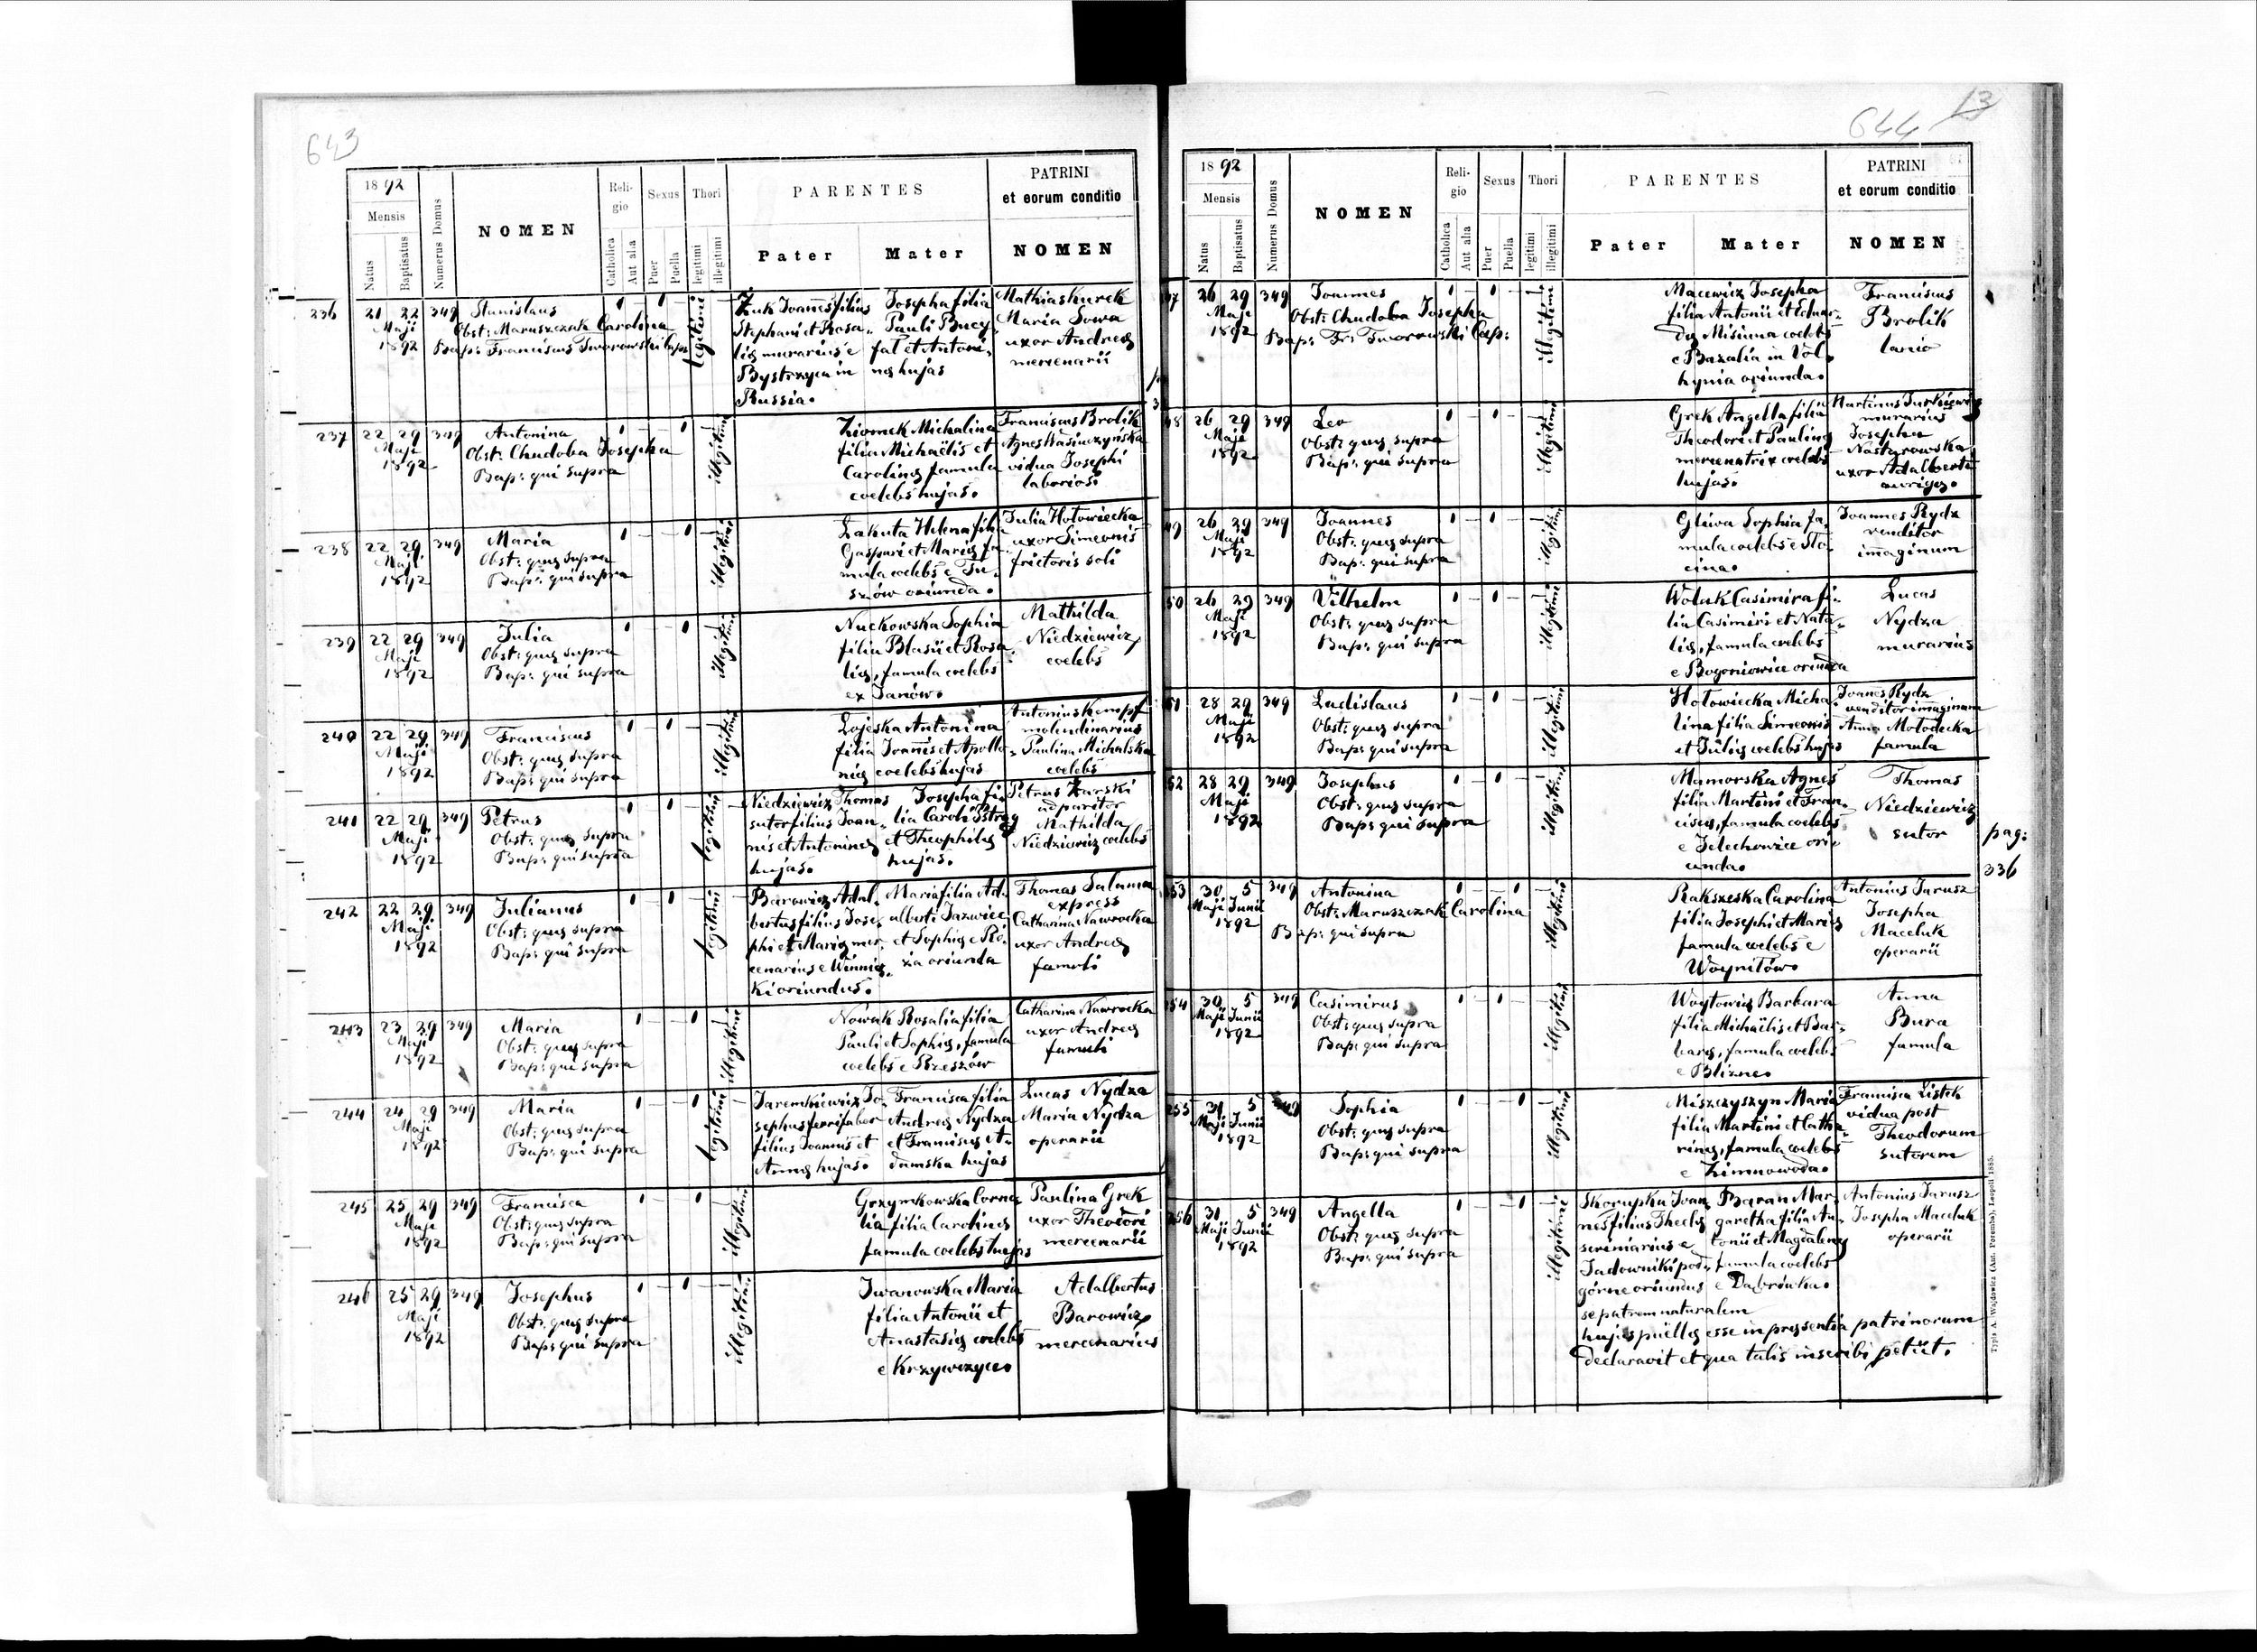 643
18 92
Mensis
Natus
Baptisatus
Numerus Domus
NOMEN
Reli-
gio
Catholica
Aut alia
Sexus
Puer
Puella
Thori
legitimi
illegitimi
PARENTES
Pater
Mater
PATRINI
et eorum conditio
NOMEN
236
21 22
Maji
1892
349
Stanislaus
Obst: Maruszczak Carolina
Bap: Franciscus Tworowski
legitimi
Żuk Joannes filius
Stephani et Rosa-
lię murarius e
Bystrzyca in
Russia.
Josepha filia
Pauli Bucy
fal et Antoni-
nę hujas
Mathias Kurek
Maria Sowa
uxor Andreę
mercenarii
237
22 29
Maji
1892
349
Antonina
Obst: Chudoba Josepha
Bap: qui supra
illegitimi
Ziomek Michalina
filia Michaëlis et
Carolinę famula
coelebs hujas.
Franciscus Brolik
Agnes
vidua Josephi
laborios.
238
22 29
Maji
1892
349
Maria
Obst: quę supra
Bap: qui supra
illegitimi
Łakuta Helena filia
Gaspari et Marię fa-
mula coelebs e Tu-
szów oriunda.
Julia Hołowiecka
uxor Simeonis
frictoris soli
239
22 29
Maji
1892
349
Julia
Obst: quę supra
Bap: qui supra
illegitimi
Nuckowska Sophia
filia Blasii et Rosa-
lię, famula coelebs
ex Janów.
Mathilda
Niedziewicz
coelebs
240
22 29
Maji
1892
349
Franciscus
Obst: quę supra
Bap: qui supra
illegitimi
Łojeska Antonina
filia Joannis et Apollo-
nię coelebs hujas
Antonius Kempf
molendinarius
Paulina Michalska
coelebs
241
22 29
Maji
1892
349
Petrus
Obst: quę supra
Bap: qui supra
legitimi
Niedziewicz Thomas
sutor filius Joan-
nis et Antoninę
hujas.
Josepha fi-
lia Caroli
et Theophilę
hujas.
Petrus Karski
adparitor
Mathilda
Niedziewicz coelebs
242
22 29
Maji
1892
349
Julianus
Obst: quę supra
Bap: qui supra
legitimi
Barowicz Adal-
bertus filius Jose-
phi et Marię mer-
cenarius e Winnicz-
ki oriundus.
Maria filia Ad-
alberti Jazwiec
et Sophię e
oriunda
Thomas Salama
express
Catharina Nawrocka
uxor Andreę
famuli
243
23 29
Maji
1892
349
Maria
Obst: quę supra
Bap: qui supra
illegitimi
Nowak Rosalia filia
Pauli et Sophię, famula
coelebs e Rzeszów
Catharina Nawrocka
uxor Andreę
famuli
244
24 29
Maji
1892
349
Maria
Obst: quę supra
Bap: qui supra
legitimi
Jaremkiewicz Jo-
sephus ferrifaber
filius Joannis et
Annę hujas.
Francisca filia
Andreę Nydza
et Franciscę A-
damska hujas
Lucas Nydza
Maria Nydza
operarii
245
25 29
Maji
1892
349
Francisca
Obst: quę supra
Bap: qui supra
illegitimi
Grzymkowska Corne-
lia filia Carolinę
famula coelebs hujas
Paulina Grek
uxor Theodori
mercenarii
246
25 29
Maji
1892
349
Josephus
Obst: quę supra
Bap: qui supra
illegitimi
Iwanowska Maria
filia Antonii et
Anastasię coelebs
e Krzywczyce.
Adalbertus
Barowicz
mercenarius
644
13
18 92
Mensis
Natus
Baptisatus
Numerus Domus
NOMEN
Reli-
gio
Catholica
Aut alia
Sexus
Puer
Puella
Thori
legitimi
illegitimi
PARENTES
Pater
Mater
PATRINI
et eorum conditio
NOMEN
47
26 29
Maji
1892
349
Joannes
Obst: Chudoba Josepha
Bap: Fr: Tworowski Coop:
illegitimi
Macewicz Josepha
filia Antonii et Eduar-
dę Misiuna coelebs
e Bazalia in Vol-
hynia oriunda.
Franciscus
Brolik
lanio
48
26 29
Maji
1892
349
Leo
Obst: quę supra
Bap: qui supra
illegitimi
Grek Angella filia
Theodori et Paulinę
mercenatrix coelebs
hujas.
Martinus Jurkiewicz
murarius
Josepha
Nasturowska
uxor Adalberti
aurigę.
49
26 29
Maji
1892
349
Joannes
Obst: quę supra
Bap: qui supra
illegitimi
Gliwa Sophia fa-
mula coelebs e Sło-
cina.
Joannes Rydz
venditor
imaginum
50
26 29
Maji
1892
349
Vilhelm
Obst: quę supra
Bap: qui supra
illegitimi
Woluk Casimira fi-
lia Casimiri et Nata-
lię, famula coelebs
e Bogoniowice oriunda
Lucas
Nydza
murarius
51
28 29
Maji
1892
349
Ladislaus
Obst: quę supra
Bap: qui supra
illegitimi
Hołowiecka Micha-
lina filia Simeonis
et Julię coelebs hujas
Joannes Rydz
venditor imaginum
Anna Mołodecka
famula
52
28 29
Maji
1892
349
Josephus
Obst: quę supra
Bap: qui supra
illegitimi
Mamorska Agnes
filia Martini et Fran-
ciscę, famula coelebs
e Jelechowice ori-
unda.
Thomas
Niedziewicz
sutor
pag:
336
253
30 5
Maji Junii
1892
349
Antonina
Obst: Maruszczak Carolina
Bap: qui supra
illegitimi
Rakszeska Carolina
filia Josephi et Marię
famula coelebs e
Woynilów.
Antonius Jarusz
Josepha
Maceluk
operarii
254
30 5
Maji Junii
1892
349
Casimirus
Obst: quę supra
Bap: qui supra
illegitimi
Woytowicz Barbara
filia Michaëlis et Bar-
barę, famula coelebs
e Blizne.
Anna
Bura
famula
255
31 5
Maji Junii
1892
349
Sophia
Obst: quę supra
Bap: qui supra
illegitimi
Miszczyszyn Maria
filia Martini et Catha-
rinę, famula coelebs
e Zimnowoda.
Francisca Listek
vidua post
Theodorum
sutorem
256
31 5
Maji Junii
1892
349
Angella
Obst: quę supra
Bap: qui supra
illegitimi
Skorupka Joan-
nes filius Theclę
scriniarius e
Jadowniki pod-
górne oriundus
Baran Mar-
garetha filia An-
tonii et Magdalenę
famula coelebs
e Dąbrówka.
Antonius Jarusz
Josepha Maceluk
operarii
se patrem naturalem
hujus puellę esse in pręsentia patrinorum
declaravit et qua talis inscribi petiit.